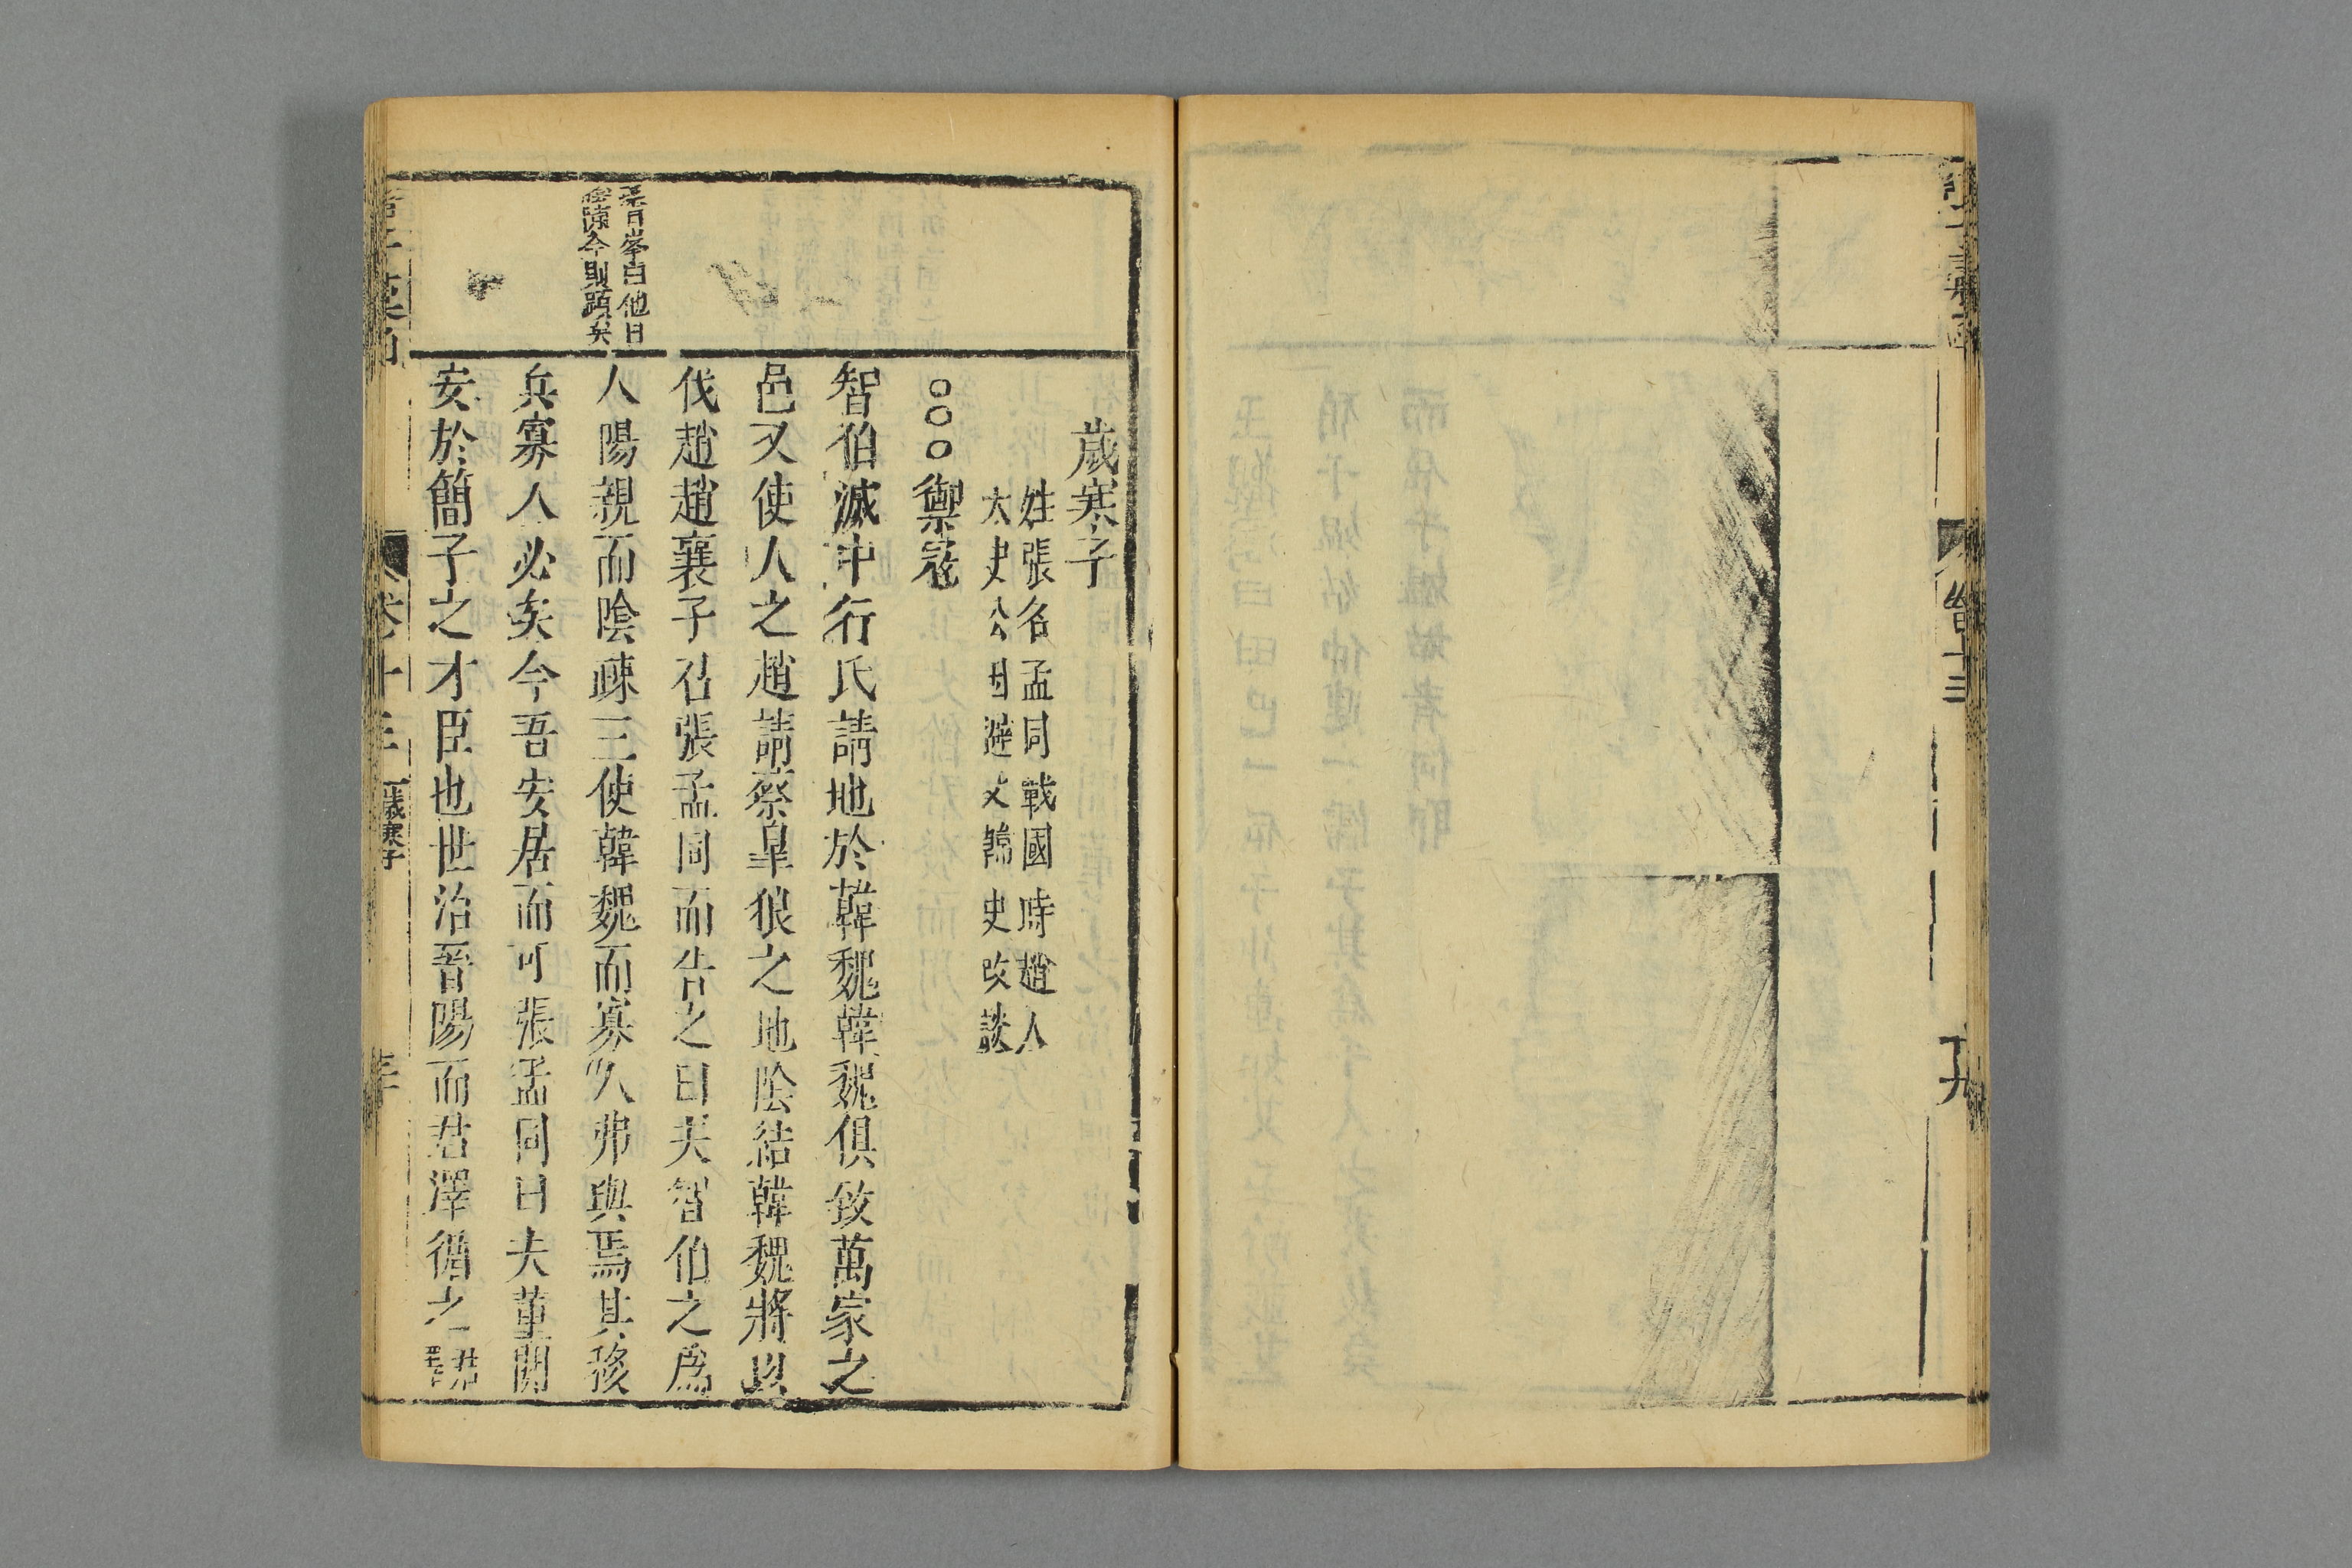 歲寒子
姓張名孟同戰國時趙人
太史公因避父諱史改談
○○○禦寇
智伯滅中行氏請地於韓魏韓魏俱致萬家之
邑又使人之趙請蔡皇狼之地陰結韓魏將以
伐趙趙襄子召張孟同而告之曰夫智伯之爲
人陽親而陰疎三使韓魏而寡人弗與焉其移
兵寡人必矣今吾安居而可張孟同曰夫董閼
安於簡子之才臣也世治晉陽而君澤循之
峯白他日
陳今則顯矣
卷十三
歲寒子